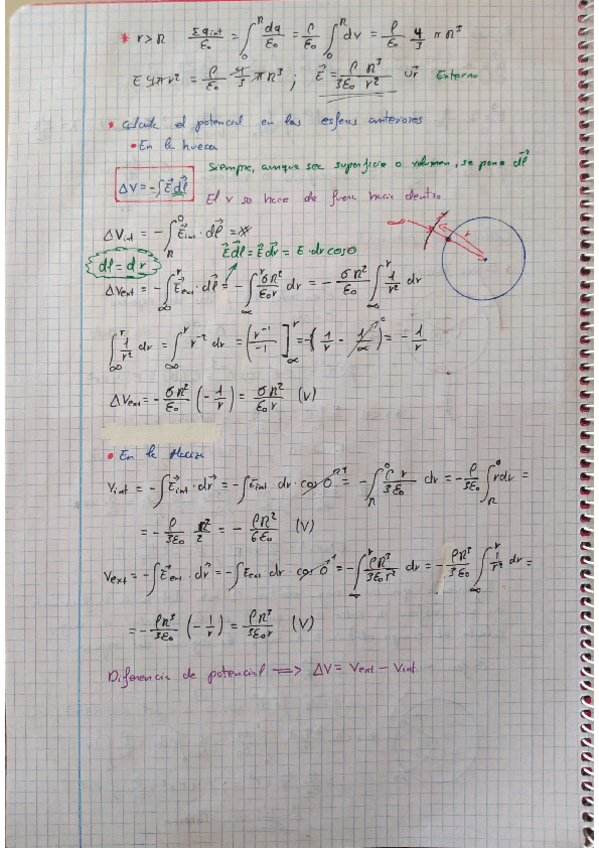 * r>R Σq_int/ε₀ = ∫₀ᴿ dq/ε₀ = ρ/ε₀ ∫₀ᴿ dv = ρ/ε₀ 4/3 π R³
E 4πr² = ρ/ε₀ 4/3 π R³ ; E⃗ = ρ R³/3ε₀ r² u⃗r Externo
• Calcula el potencial en las esferas anteriores
• En la hueca
Siempre, aunque sea superficie o volumen, se pone dl⃗
ΔV = -∫E⃗ dl⃗
El v se hace de fuera hacia dentro
ΔV_int = -∫_R^0 E⃗_int · dl⃗ =
∞ r
dl = dr
E⃗ dl⃗ = E⃗ dr⃗ = E · dr cosθ
ΔV_ext = -∫_∞^r E⃗_ext · dl⃗ = -∫_∞^r σR²/ε₀r dr = -σR²/ε₀ ∫_∞^r 1/r² dr
∫_∞^r 1/r² dr = ∫_∞^r r⁻² dr = (r⁻¹/-1]_∞^r = -(1/r - 1/∞) = -1/r
ΔV_ext = -σR²/ε₀ (-1/r) = σR²/ε₀r (V)
• En la maciza
V_int = -∫E⃗_int · dr⃗ = -∫E_int · dr · cos 0 = -∫_R^0 ρ r/3ε₀ dr = -ρ/3ε₀ ∫_R^0 r dr =
= -ρ/3ε₀ R²/2 = -ρR²/6ε₀ (V)
V_ext = -∫E⃗_ext · dr⃗ = -∫E_ext dr · cos 0 = -∫_∞^r ρR³/3ε₀r² dr = -ρR³/3ε₀ ∫_∞^r 1/r² dr =
= -ρR³/3ε₀ (-1/r) = ρR³/3ε₀r (V)
Diferencia de potencial ⟹ ΔV = V_ext - V_int